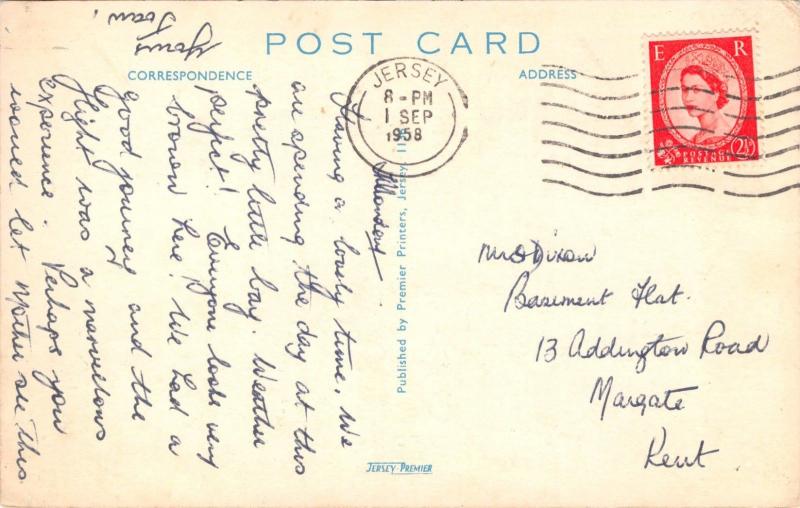 POST CARD
CORRESPONDENCE
ADDRESS
JERSEY
8 - PM
1 SEP
1958
E R
POSTAGE
REVENUE
2½
Monday.
Having a lovely time. We
are spending the day at this
pretty little bay. Weather
perfect! Everyone looks very
brown here! We had a
good journey and the
flight was a marvellous
experience. Perhaps you
would let Mother see this
Yours
Joan.
Published by Premier Printers, Jersey
JERSEY-PREMIER
Mrs Dixon
Basement Flat.
13 Addington Road
Margate
Kent